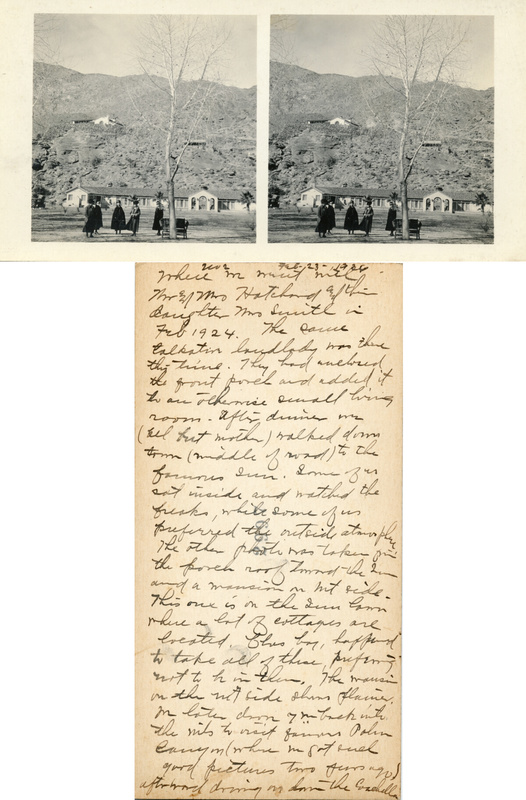 Feb 23 - 1926
where we went with
Mr & Mrs Hatchard & their
daughter Mrs Smith in
Feb 1924. The same
talkative landlady was there
this time. They had enclosed
the front porch and added it
to an otherwise small living
room. After dinner we
(all but mother) walked down
town (middle of road) to the
famous Inn. Some of us
sat inside and watched the
freaks, while some of us
preferred the outside atmosphere.
The other was taken from
the porch roof toward the Inn
and a mansion on mt side.
This one is on the Inn lawn
where a lot of cottages are
located. Chas boy, happened
to take all of these, preferring
not to be in them. The mansion
on the mt side shows plainer.
We later down back into
the mts to visit famous Palm
Canyon (where we got such
good pictures two years ago)
afterward driving on down the Coachella